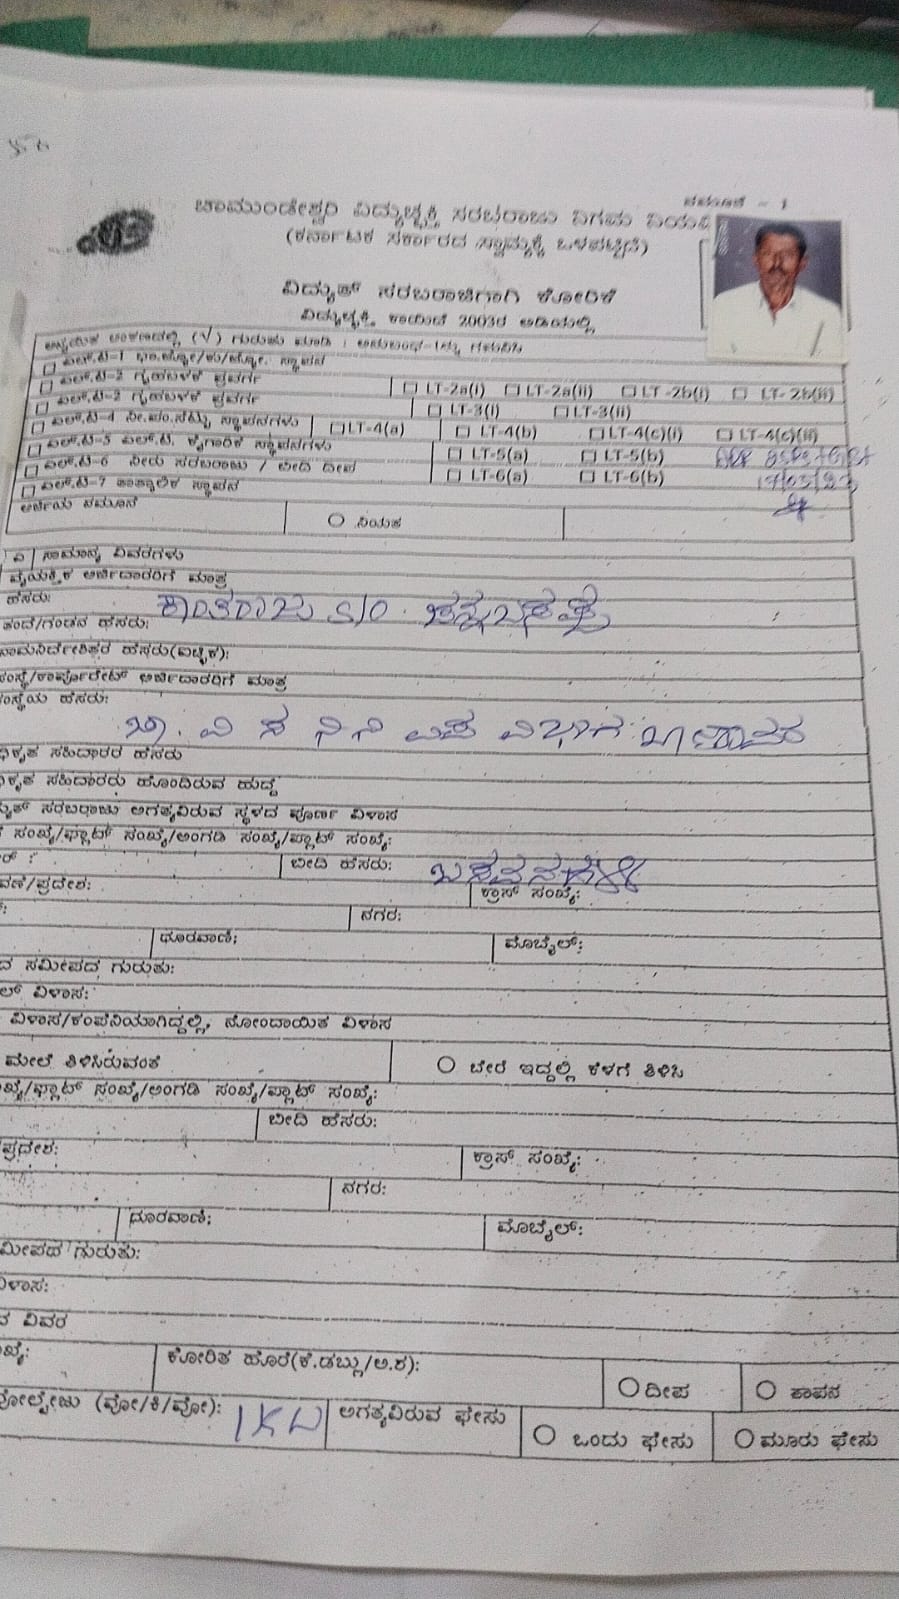 ನಮೂನೆ - 1
ಚಾಮುಂಡೇಶ್ವರಿ ವಿದ್ಯುಚ್ಛಕ್ತಿ ಸರಬರಾಜು ನಿಗಮ ನಿಯಮಿ
(ಕರ್ನಾಟಕ ಸರ್ಕಾರದ ಸ್ವಾಮ್ಯಕ್ಕೆ ಒಳಪಟ್ಟಿದೆ)
ವಿದ್ಯುತ್ ಸರಬರಾಜಿಗಾಗಿ ಕೋರಿಕೆ
ವಿದ್ಯುಚ್ಛಕ್ತಿ ಕಾಯಿದೆ 2003ರ ಅಡಿಯಲ್ಲಿ
(√) ಗುರುತು ಮಾಡಿ :
ಎಲ್.ಟಿ-1 ಸ್ಥಾಪನ
ಎಲ್.ಟಿ-2 ಗೃಹಬಳಕೆ ಪ್ರವರ್ಗ LT-2a(i) LT-2a(ii) LT-2b(i) LT-2b(ii)
ಎಲ್.ಟಿ-2 ಗೃಹಬಳಕೆ ಪ್ರವರ್ಗ LT-3(i) LT-3(ii)
ಎಲ್.ಟಿ-4 ನೀ.ಪಂ.ಸೆಟ್ಟು ಸ್ಥಾಪನಗಳು LT-4(a) LT-4(b) LT-4(c)(i) LT-4(c)(ii)
ಎಲ್.ಟಿ-5 ಎಲ್.ಟಿ. ಕೈಗಾರಿಕೆ ಸ್ಥಾಪನಗಳು LT-5(a) LT-5(b)
ಎಲ್.ಟಿ-6 ನೀರು ಸರಬರಾಜು / ಬೀದಿ ದೀಪ LT-6(a) LT-6(b)
ಎಲ್.ಟಿ-7 ತಾತ್ಕಾಲಿಕ ಸ್ಥಾಪನ
ಅರ್ಜಿಯ ನಮೂನೆ ನಿಯತ
ಎ ಸಾಮಾನ್ಯ ವಿವರಗಳು
ವೈಯಕ್ತಿಕ ಅರ್ಜಿದಾರರಿಗೆ ಮಾತ್ರ
ಹೆಸರು: ಕಾಂತರಾಜು S/O. ಚನ್ನಬಸಪ್ಪ
ತಂದೆ/ಗಂಡನ ಹೆಸರು:
ನಾಮನಿರ್ದೇಶಿತರ ಹೆಸರು(ಐಚ್ಛಿಕ):
ಸಂಸ್ಥೆ/ಕಾರ್ಪೊರೇಟ್ ಅರ್ಜಿದಾರರಿಗೆ ಮಾತ್ರ
ಸಂಸ್ಥೆಯ ಹೆಸರು:
ಚಾ. ವಿ ಸ ನಿ ನಿ ವಿಭಾಗ
ಧಿಕೃತ ಸಹಿದಾರರ ಹೆಸರು
ಧಿಕೃತ ಸಹಿದಾರರು ಹೊಂದಿರುವ ಹುದ್ದೆ
ದ್ಯುತ್ ಸರಬರಾಜು ಅಗತ್ಯವಿರುವ ಸ್ಥಳದ ಪೂರ್ಣ ವಿಳಾಸ
ಸಂಖ್ಯೆ/ಫ್ಲಾಟ್ ಸಂಖ್ಯೆ/ಅಂಗಡಿ ಸಂಖ್ಯೆ/ಪ್ಲಾಟ್ ಸಂಖ್ಯೆ:
ಬೀದಿ ಹೆಸರು: ಬಸವನಹಳ್ಳಿ
ವಣೆ/ಪ್ರದೇಶ: ಕ್ರಾಸ್ ಸಂಖ್ಯೆ:
ನಗರ:
ದೂರವಾಣಿ: ಮೊಬೈಲ್:
ದ ಸಮೀಪದ ಗುರುತು:
ಲ್ ವಿಳಾಸ:
ವಿಳಾಸ/ಕಂಪನಿಯಾಗಿದ್ದಲ್ಲಿ, ನೋಂದಾಯಿತ ವಿಳಾಸ
ಮೇಲೆ ತಿಳಿಸಿರುವಂತೆ ಬೇರೆ ಇದ್ದಲ್ಲಿ ಕೆಳಗೆ ತಿಳಿಸಿ
ಖ್ಯೆ/ಫ್ಲಾಟ್ ಸಂಖ್ಯೆ/ಅಂಗಡಿ ಸಂಖ್ಯೆ/ಪ್ಲಾಟ್ ಸಂಖ್ಯೆ:
ಬೀದಿ ಹೆಸರು:
ಪ್ರದೇಶ: ಕ್ರಾಸ್ ಸಂಖ್ಯೆ:
ನಗರ:
ದೂರವಾಣಿ: ಮೊಬೈಲ್:
ಮೀಪದ ಗುರುತು:
ವಿಳಾಸ:
ತ ವಿವರ
ಖ್ಯೆ: ಕೋರಿತ ಹೊರೆ(ಕೆ.ಡಬ್ಲು/ಅ.ಶ): ದೀಪ ತಾಪನ
ವೋಲ್ಟೇಜು (ವೋ/ಕಿ/ವೋ): 1KW ಅಗತ್ಯವಿರುವ ಫೇಸು ಒಂದು ಫೇಸು ಮೂರು ಫೇಸು